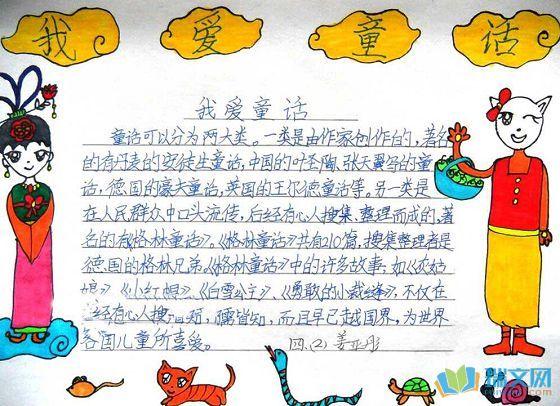 我爱童话
我爱童话
童话可以分为两大类。一类是由作家创作的,著名
的有丹麦的安徒生童话,中国的叶圣陶、张天翼写的童
话,德国的豪夫童话,英国的王尔德童话等。另一类是
在人民群众中口头流传,后经有心人搜集、整理而成的,著
名的有《格林童话》。《格林童话》共有210篇,搜集整理者是
德国的格林兄弟。《格林童话》中的许多故事,如《灰姑
娘》《小红帽》、《白雪公主》、《勇敢的小裁缝》,不仅在
经有心人搜 知,孺皆知,而且早已走越国界,为世界
各国儿童所喜爱。 四.(2) 姜亚彤
瑞文网